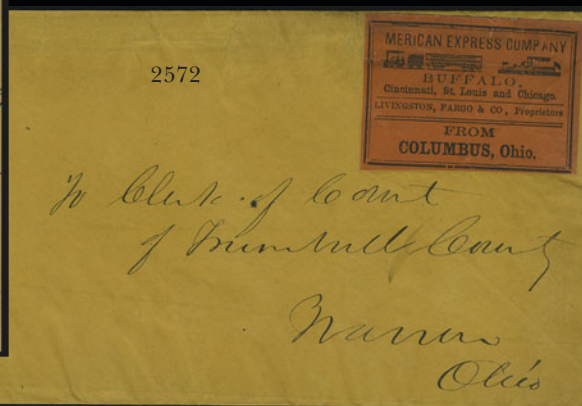 2572
MERICAN EXPRESS COMPANY
BUFFALO,
Cincinnati, St. Louis and Chicago.
LIVINGSTON, FARGO & CO, Proprietors
FROM
COLUMBUS, Ohio.
To Clerk of Court
of Trumbull County
Warren
Ohio